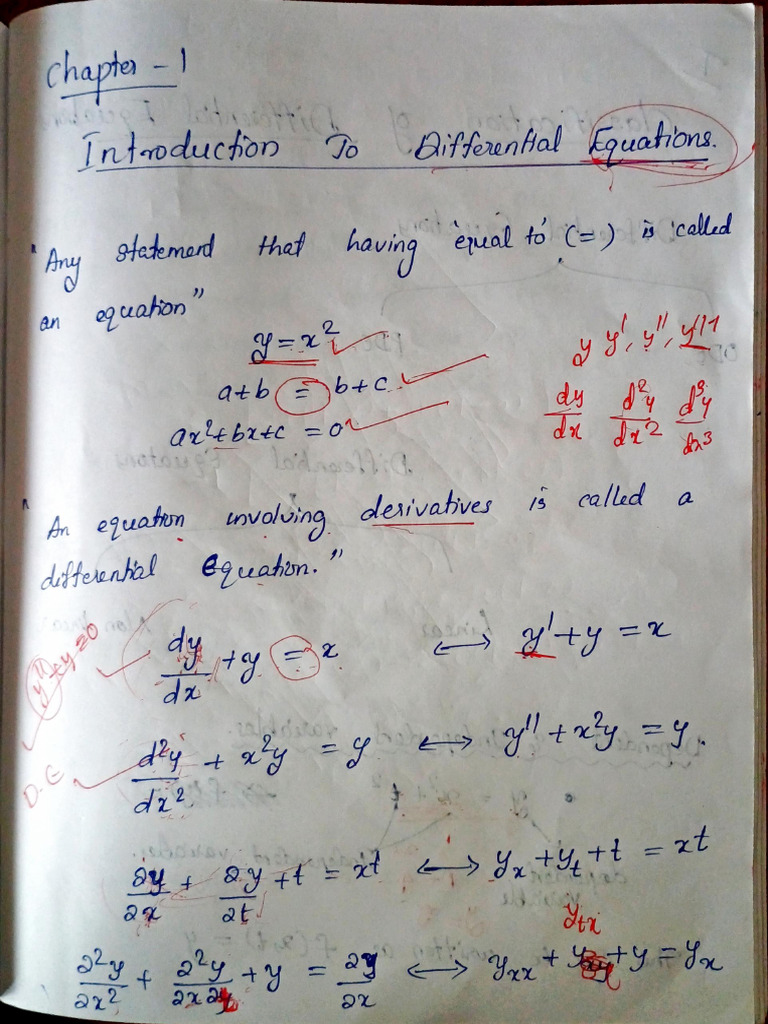 Chapter - 1
Introduction To Differential Equations.
"Any statement that having 'equal to' (=) is called
an equation"
y = x²
a+b = b+c
ax²+bx+c = 0
y y', y'', y'''
dy/dx d²y/dx² d³y/dx³
"An equation involving derivatives is called a
differential equation."
y''+y=0
dy/dx + y = x ⟷ y' + y = x
D.E
d²y/dx² + x²y = y ⟷ y'' + x²y = y.
∂y/∂x + ∂y/∂t + t = xt ⟷ yₓ + yₜ + t = xt
yₜₓ
∂²y/∂x² + ∂²y/∂x + y = ∂y/∂x ⟷ yₓₓ + y + y = yₓ